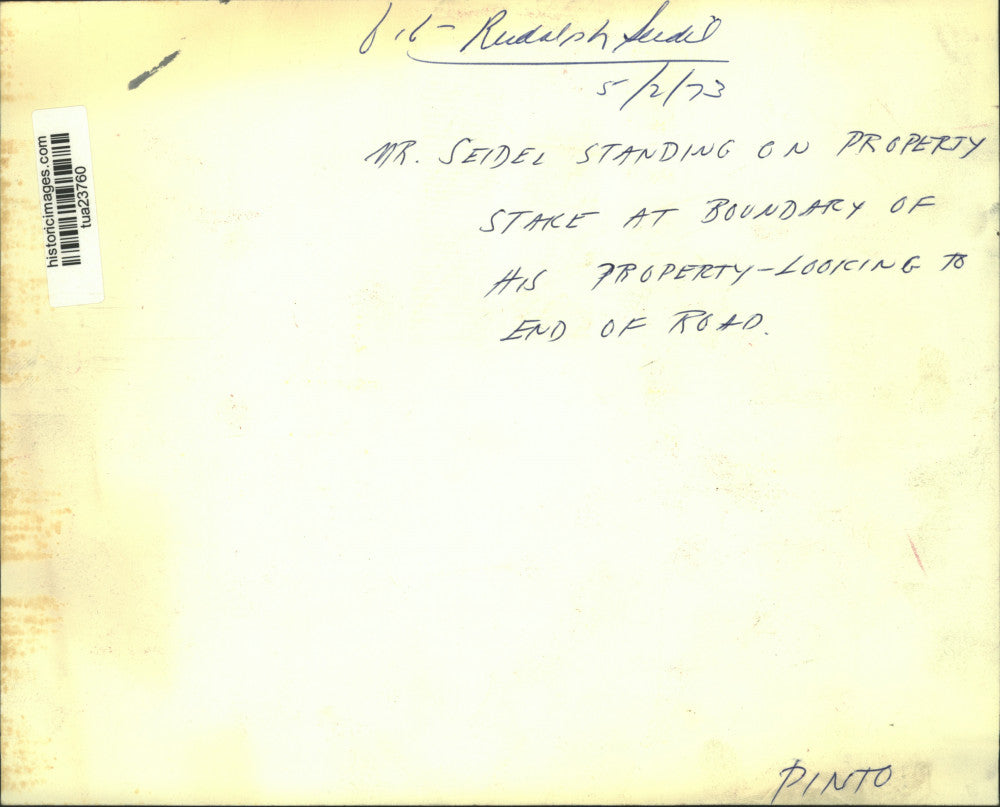 Rudolph Seidel
5/2/73
MR. SEIDEL STANDING ON PROPERTY
STAKE AT BOUNDARY OF
HIS PROPERTY-LOOKING TO
END OF ROAD.
historicimages.com
tua23760
PINTO